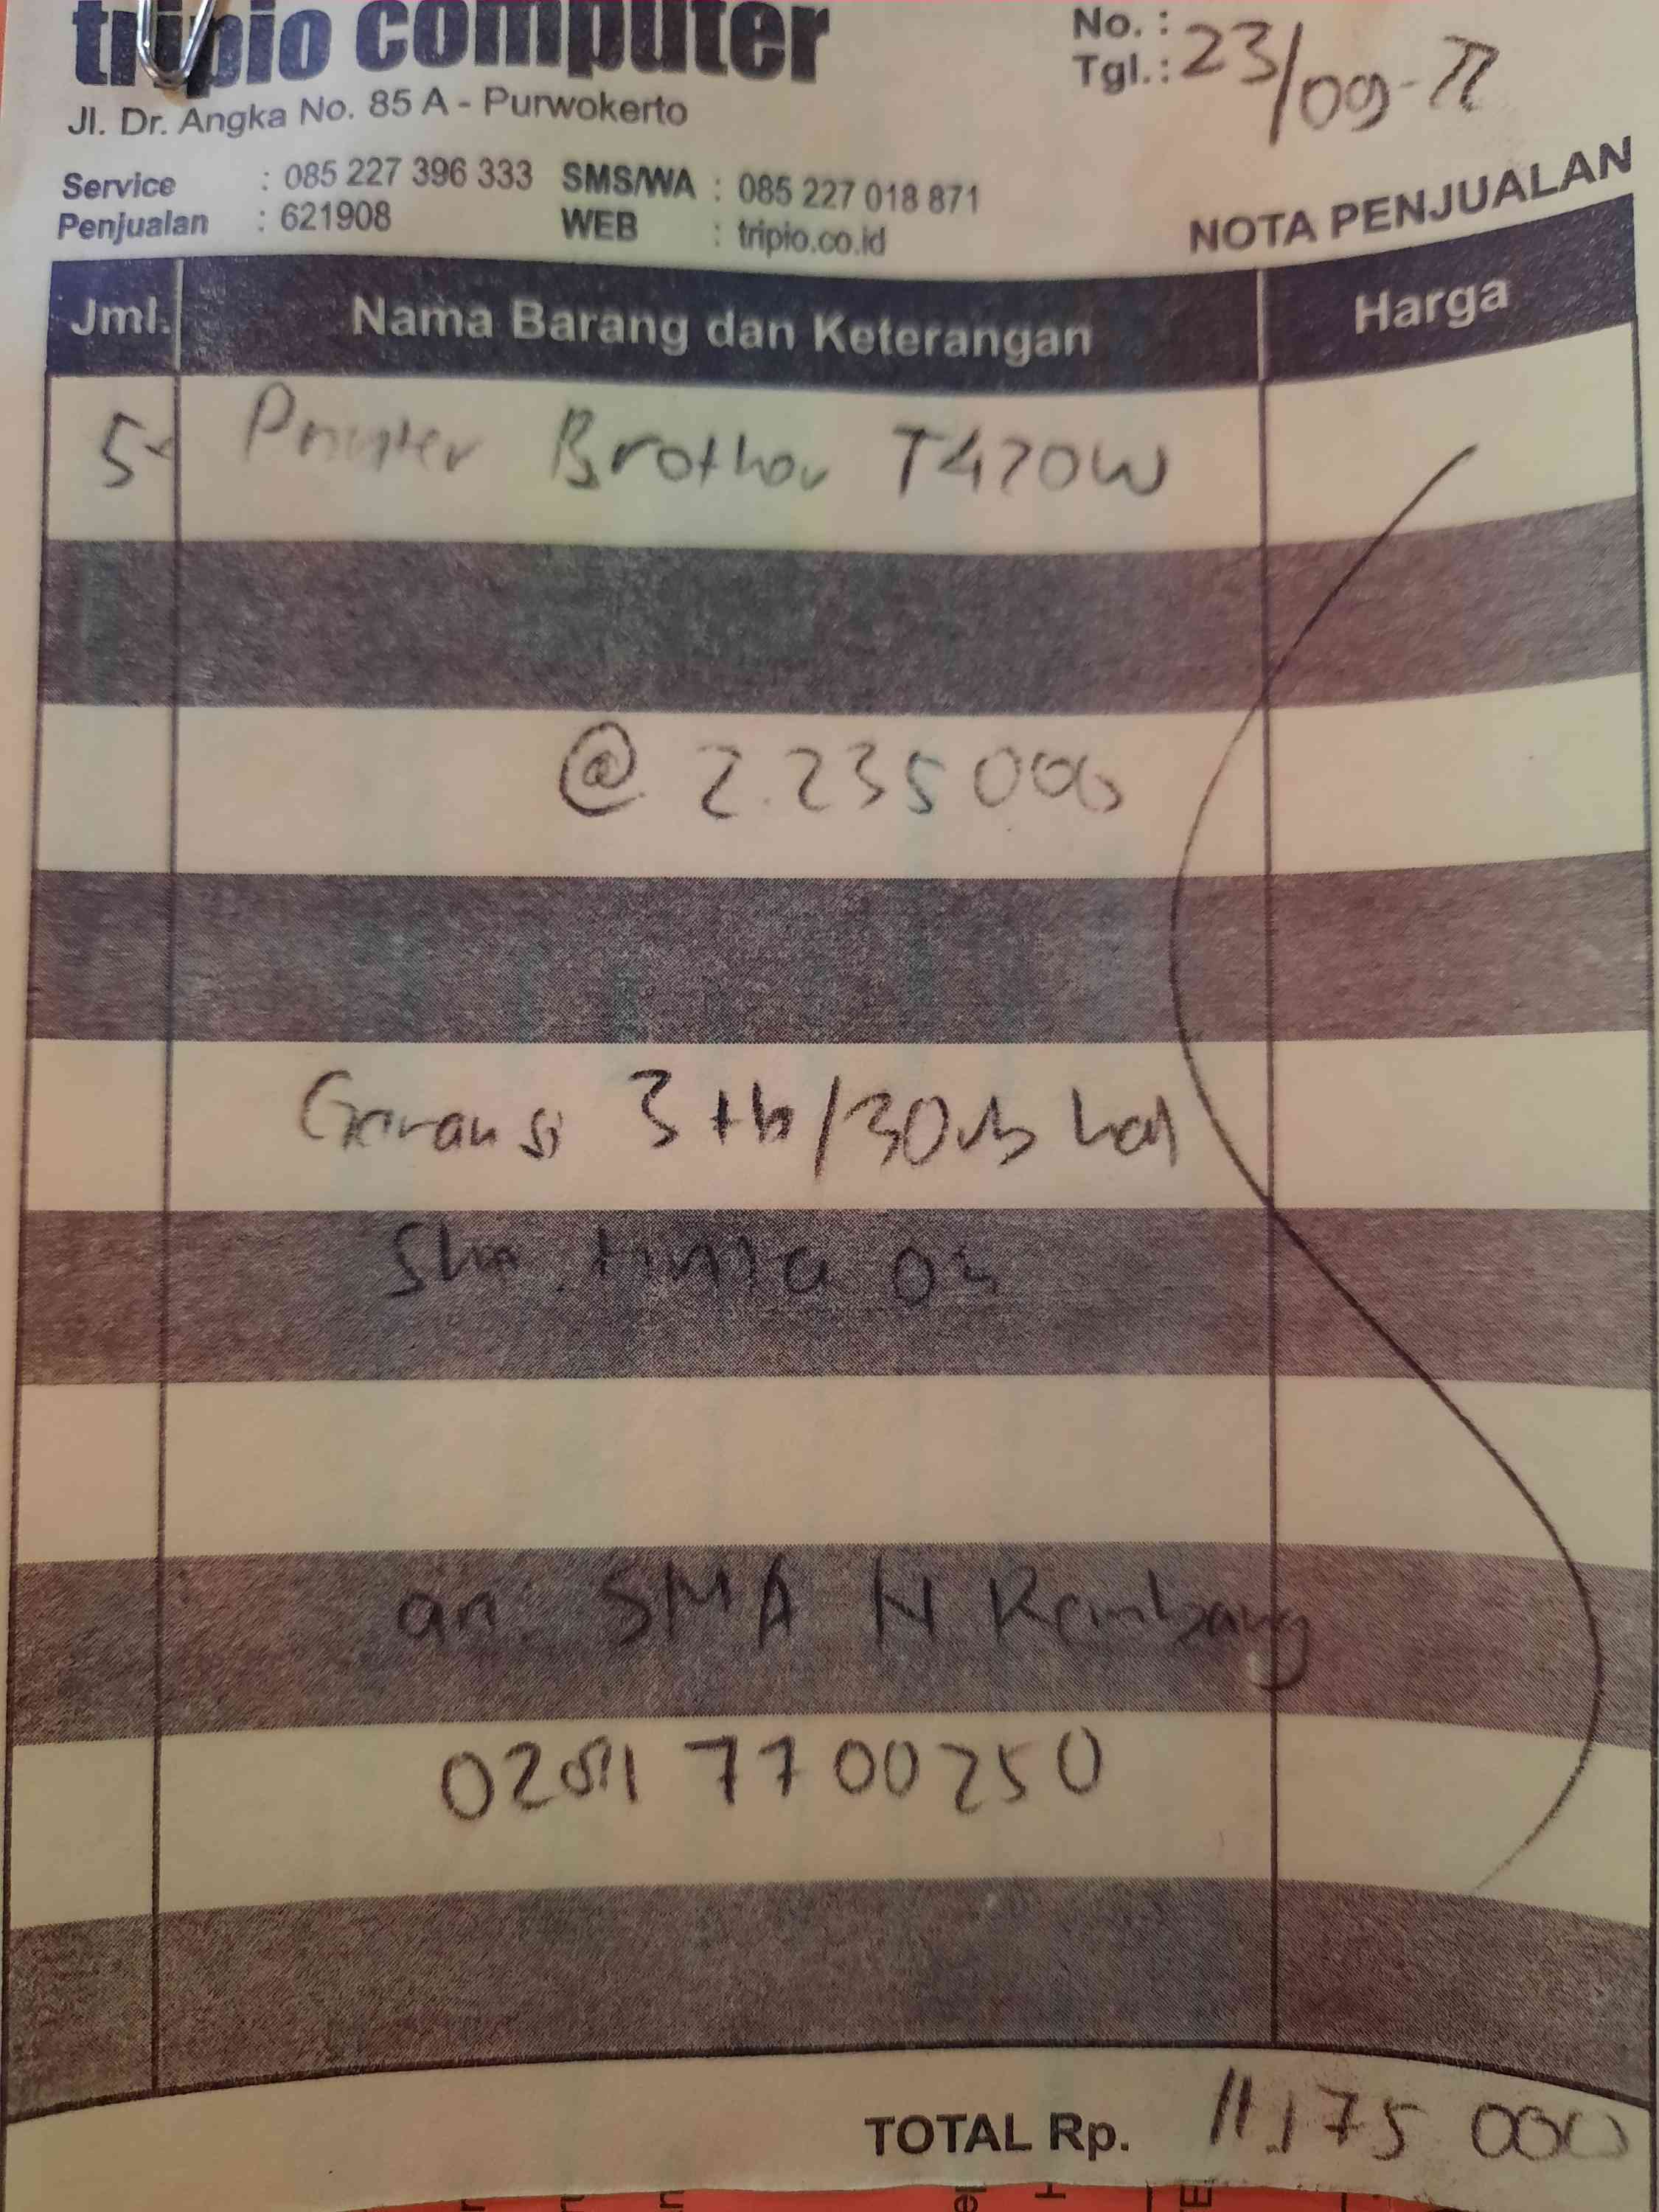 tripio computer
Jl. Dr. Angka No. 85 A - Purwokerto
No. :
Tgl. : 23/09-22
Service : 085 227 396 333 SMS/WA : 085 227 018 871
Penjualan : 621908 WEB : tripio.co.id
NOTA PENJUALAN
Jml. Nama Barang dan Keterangan Harga
5 Printer Brother T420W
@ 2.235 000
Garansi 3 th/30rb hal
tinta ori
an. SMA N Rembang
0281 7700250
TOTAL Rp. 11.175 000